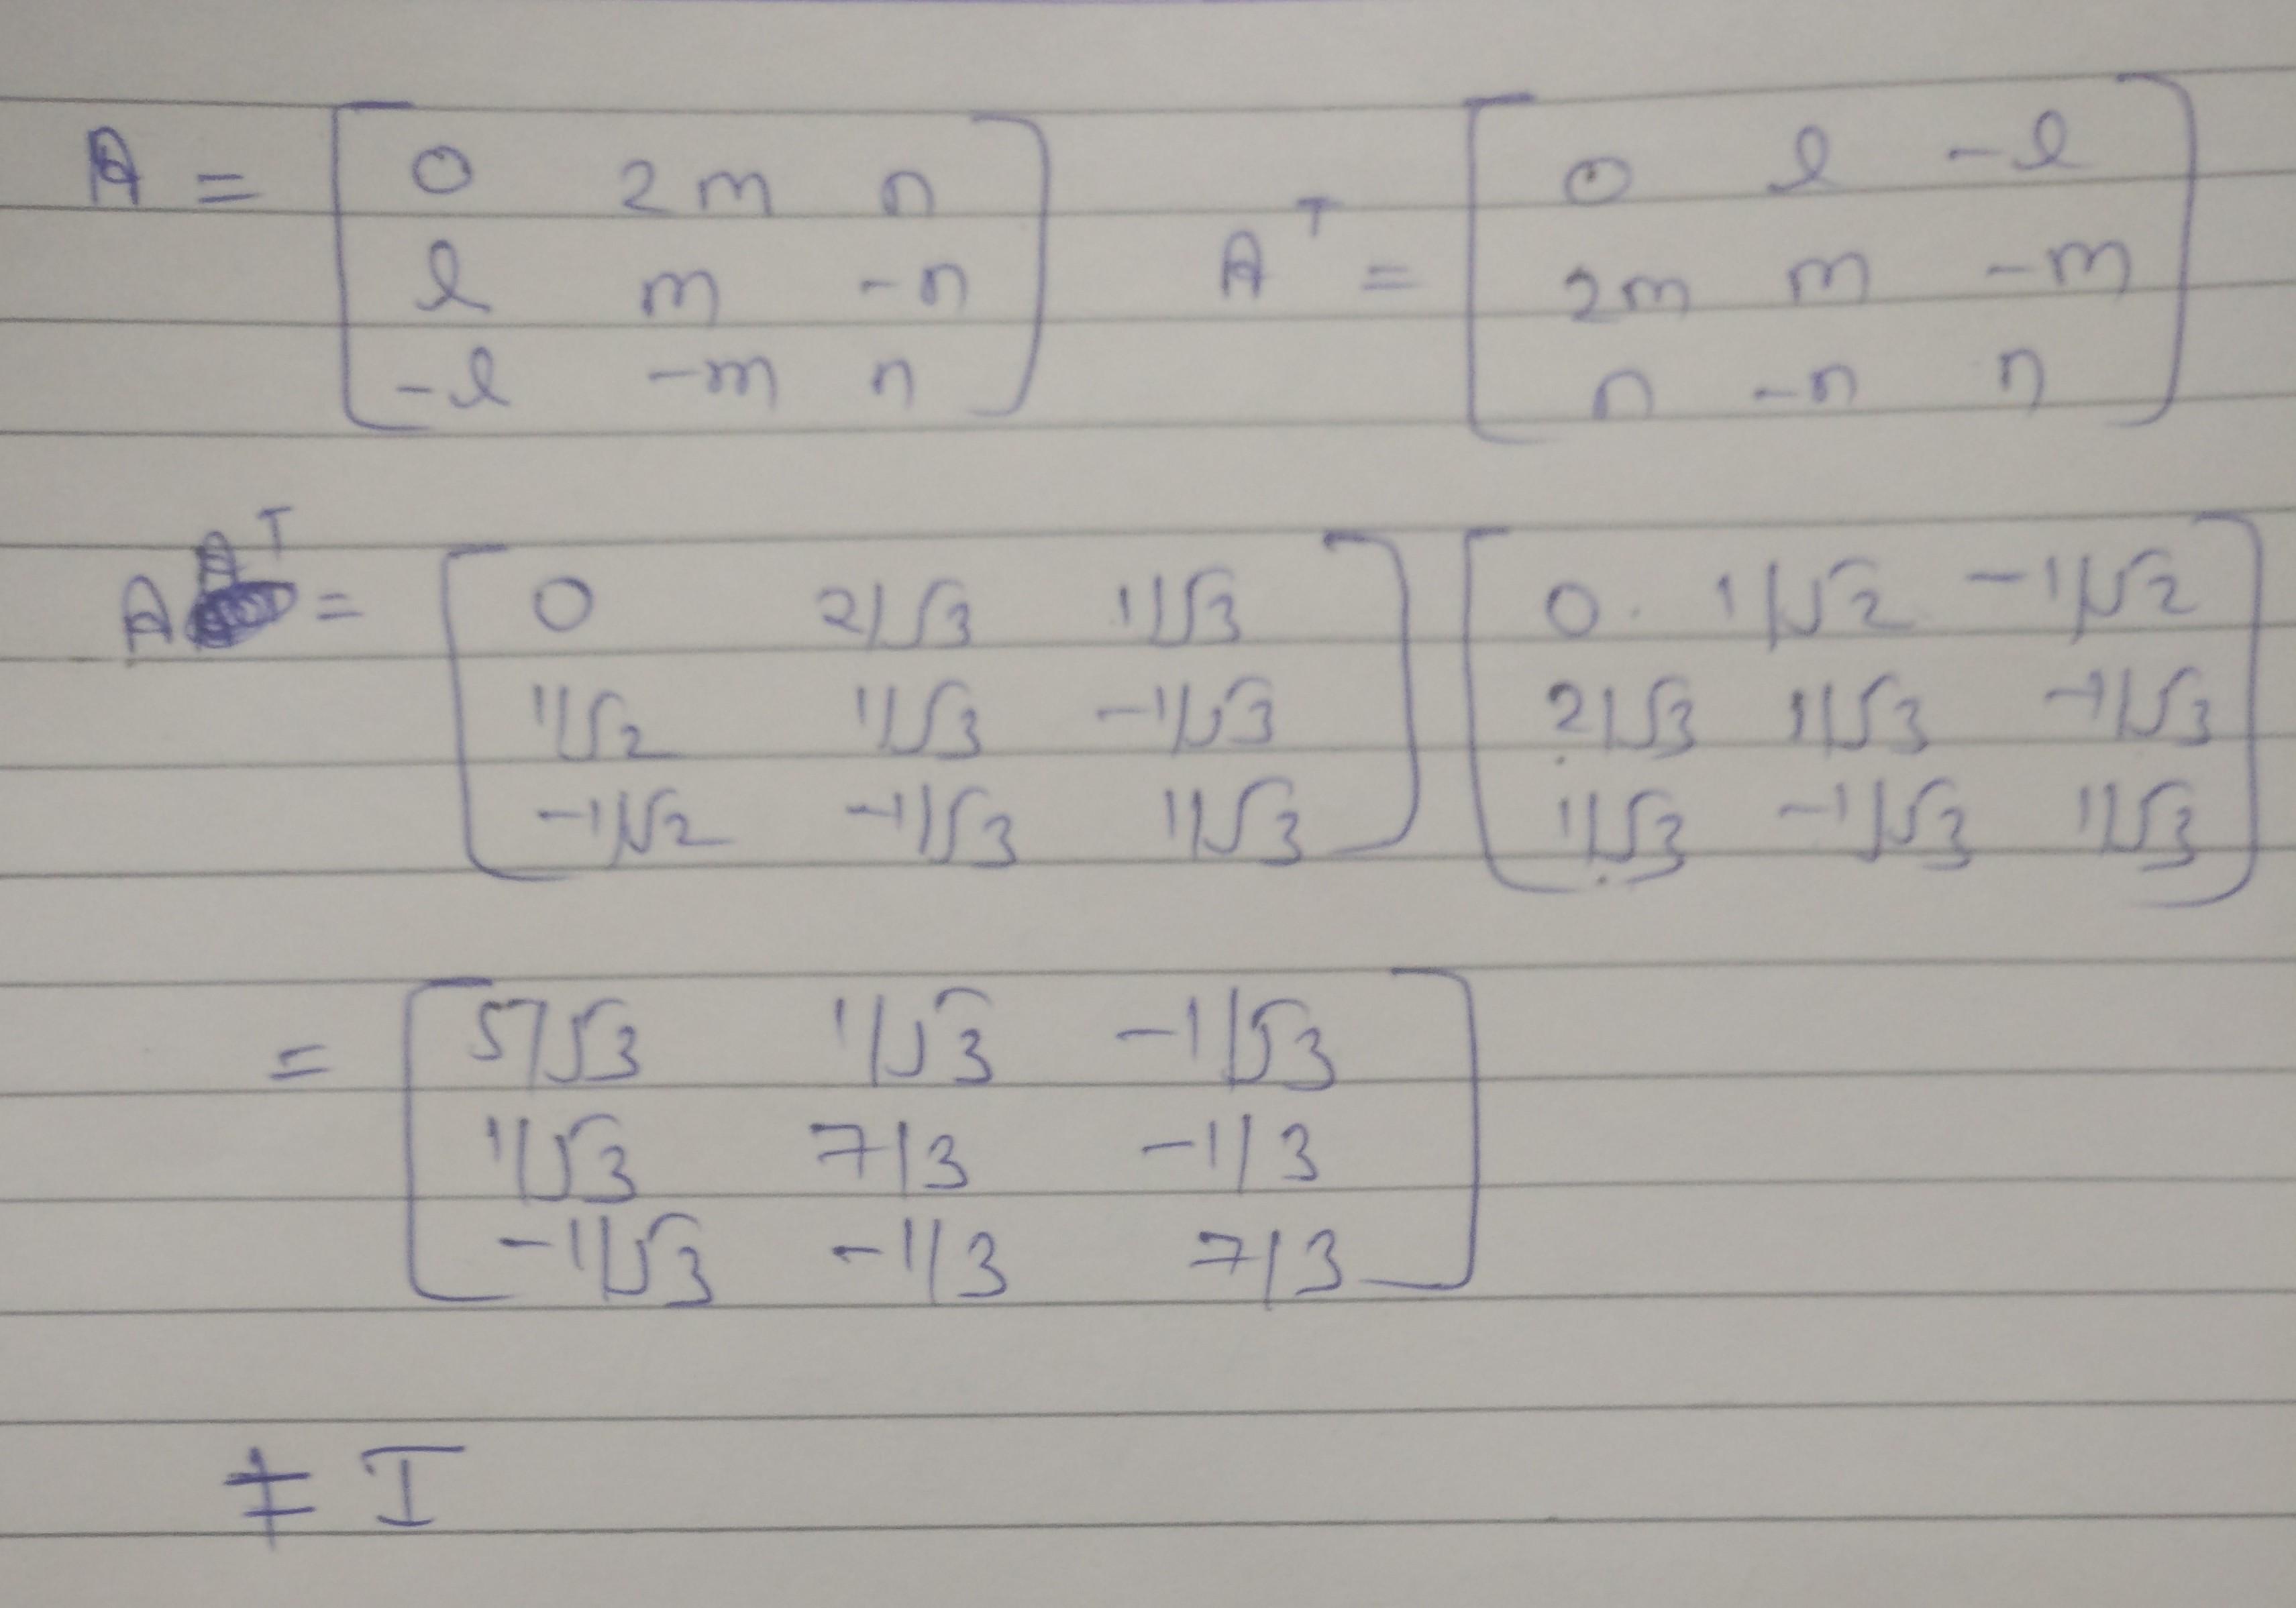 A = [ 0 2m n
l m -n
-l -m n ]
A^T = [ 0 l -l
2m m -m
n -n n ]
AA^T = [ 0 2/√3 1/√3
1/√2 1/√3 -1/√3
-1/√2 -1/√3 1/√3 ] [ 0 1/√2 -1/√2
2/√3 1/√3 -1/√3
1/√3 -1/√3 1/√3 ]
= [ 5/√3 1/√3 -1/√3
1/√3 7/3 -1/3
-1/√3 -1/3 7/3 ]
≠ I